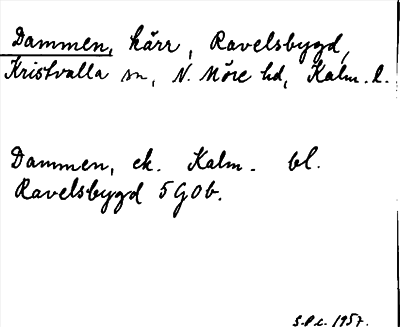 Dammen, kärr, Ravelsbygd,
Kristvalla sn, N. Möre hd, Kalm. l.
Dammen, ek. Kalm. bl.
Ravelsbygd 5 G 0 b.
1957.